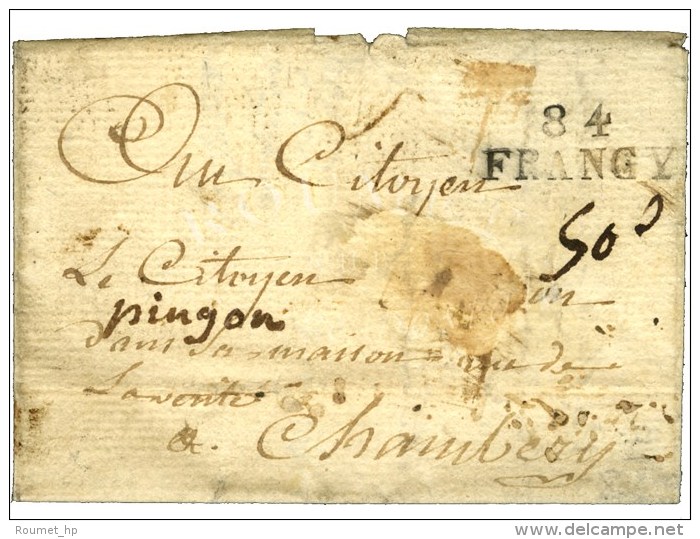 84
FRANGY
Citoyen
50 s
Le Citoyen
pingon
dans sa maison rue de
a Chambery
Roumet_hp
delcampe.net